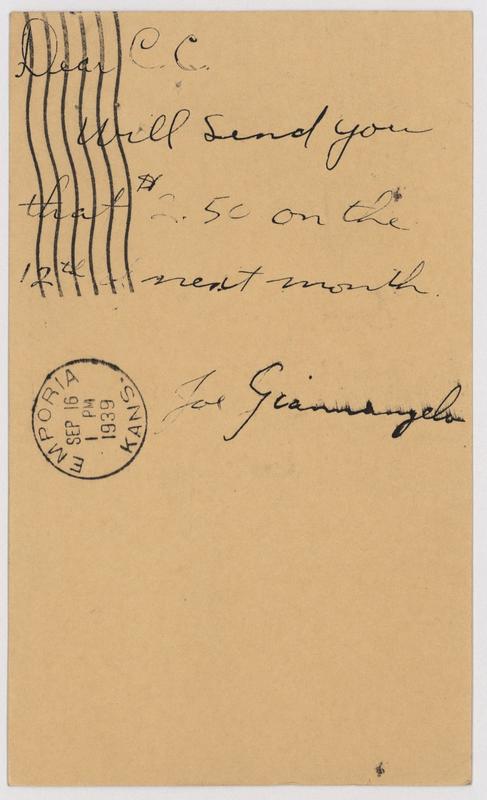 Dear C.C.
Will send you
that $2.50 on the
12th of next month.
Joe Giannangelo
EMPORIA
SEP 16
1 PM
1939
KANS.